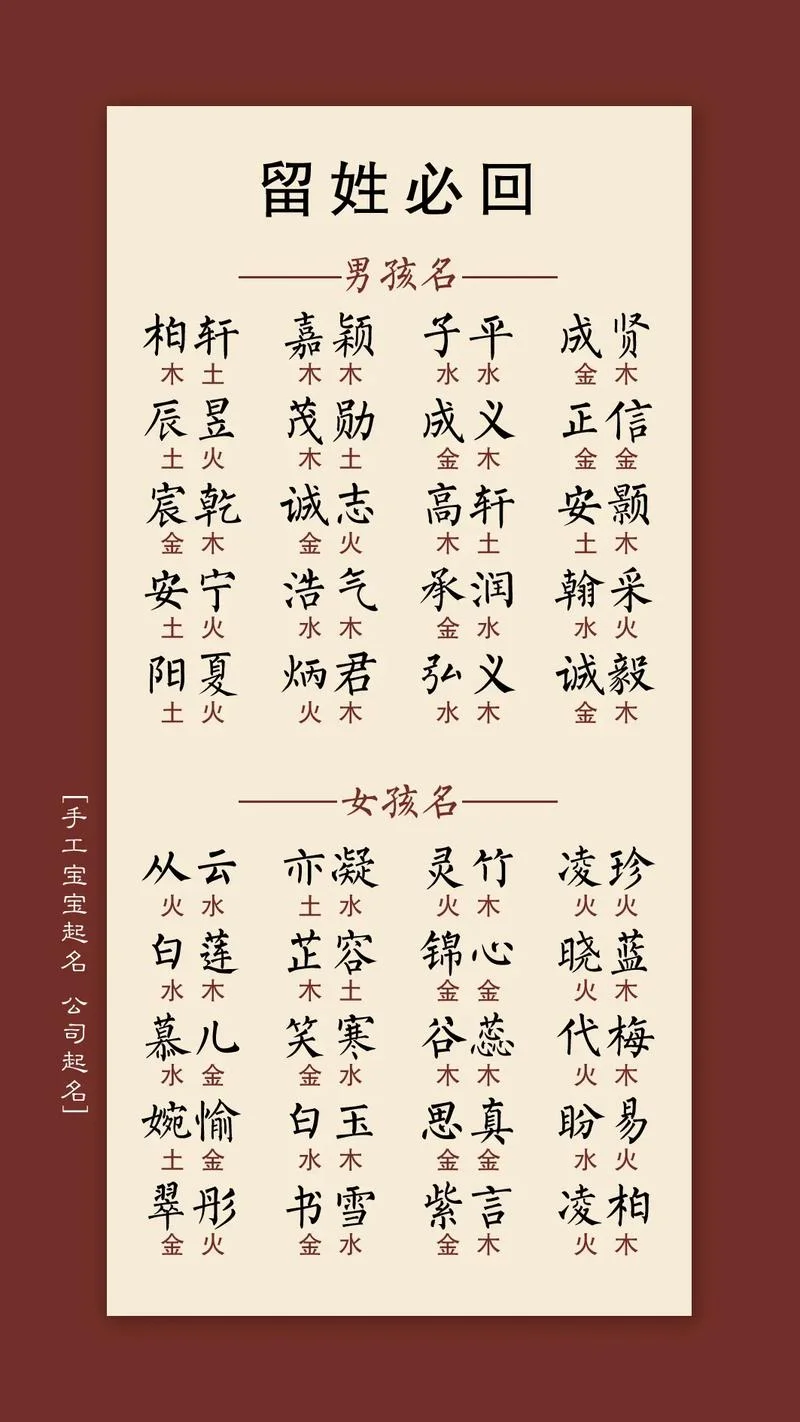 留姓必回
男孩名
柏轩 嘉颖 子平 成贤
木土 木木 水水 金木
辰昱 茂勋 成义 正信
土火 木土 金木 金金
宸乾 诚志 高轩 安颢
金木 金火 木土 土木
安宁 浩气 承润 翰采
土火 水木 金水 水火
阳夏 炳君 弘义 诚毅
土火 火木 水木 金木
女孩名
从云 亦凝 灵竹 凌珍
火水 土水 火木 火火
白莲 芷容 锦心 晓蓝
水木 木土 金金 火木
慕儿 笑寒 谷蕊 代梅
水金 金水 木木 火木
婉愉 白玉 思真 盼易
土金 水木 金金 水火
翠彤 书雪 紫言 凌柏
金火 金水 金木 火木
[手工宝宝起名 公司起名]